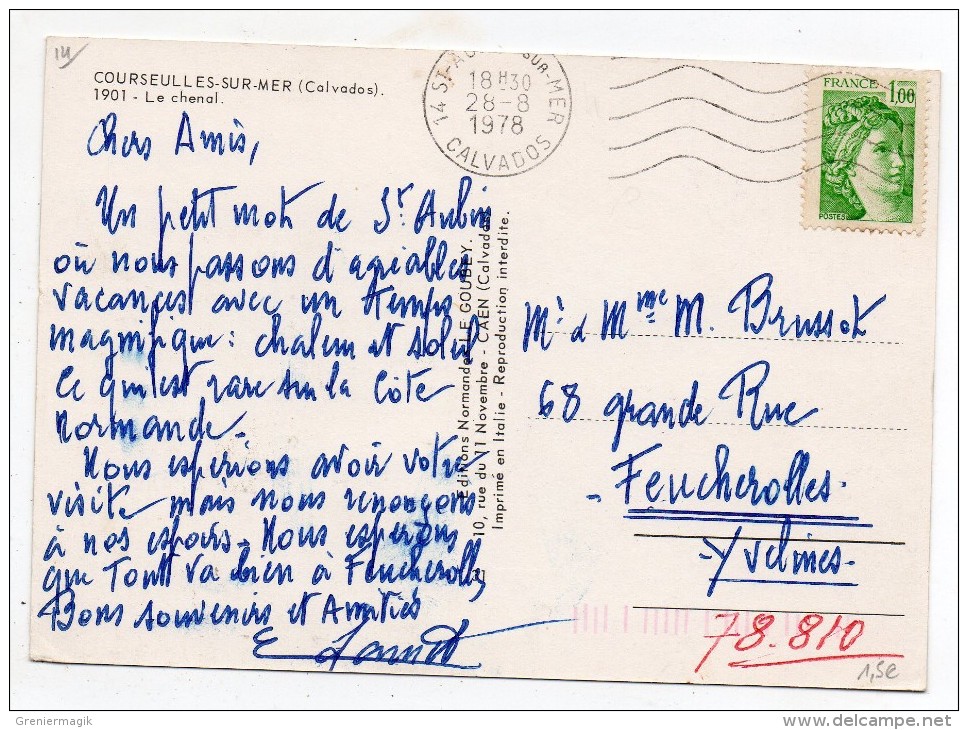 COURSEULLES-SUR-MER (Calvados).
1901 - Le chenal.
Chers Amis,
Un petit mot de St. Aubin
où nous passons d'agréables
vacances avec un temps
magnifique : chaleur et soleil
ce qu'est rare sur la Côte
Normande.
Nous espérions avoir votre
visite mais nous renonçons
à nos espoirs. Nous espérons
que Tout va bien à Feucherolles
Bons souvenirs et Amitiés
E
Editions Normandes LE GOUBEY.
10, rue du 11 Novembre - CAEN (Calvados)
Imprimé en Italie - Reproduction interdite.
14 ST-AUBIN-SUR-MER
18H30
28-8
1978
CALVADOS
FRANCE 1,00
POSTES
Mr & Mme M. Brussot
68 grande Rue
- Feucherolles -
- Yvelines -
78.810
1,5€
Greniermagik
delcampe.net